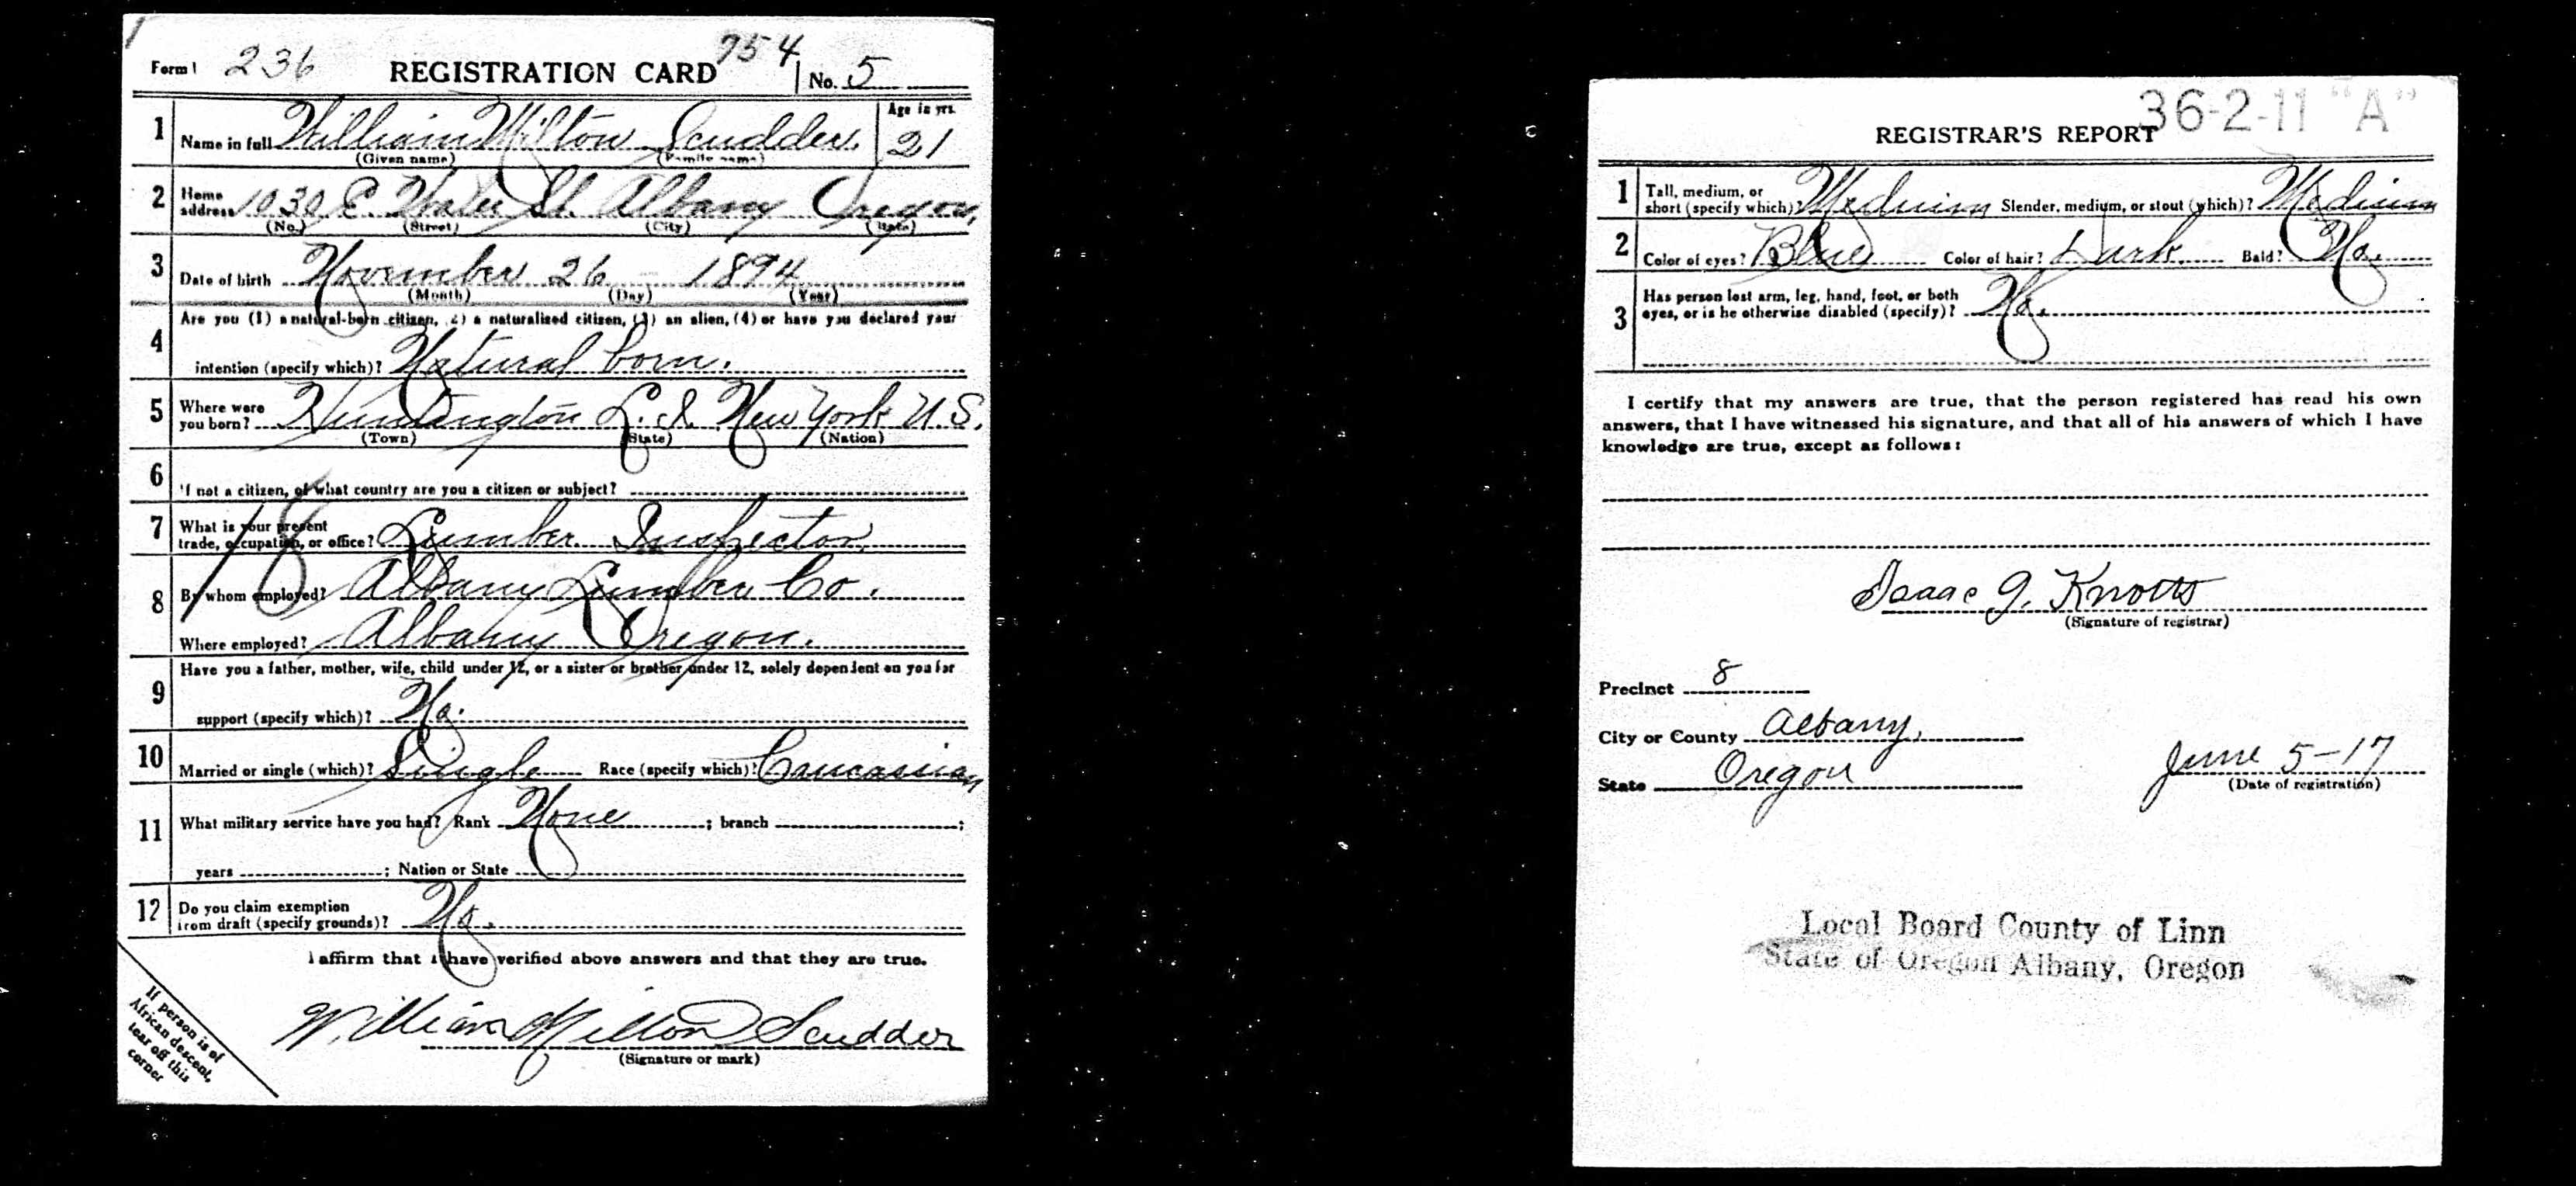 Form 1 236 REGISTRATION CARD 754 No. 5
1 Name in full William Milton Scudder. Age in yrs. 21
(Given name) (Family name)
2 Home address 1030 E. Water St. Albany Oregon,
(No.) (Street) (City) (State)
3 Date of birth November 26 - 1894
(Month) (Day) (Year)
4 Are you (1) a natural-born citizen, (2) a naturalized citizen, (3) an alien, (4) or have you declared your
intention (specify which)? Natural born.
5 Where were you born? Huntington L.I. New York U.S.
(Town) (State) (Nation)
6 If not a citizen, of what country are you a citizen or subject?
7 What is your present
trade, occupation, or office? Lumber Inspector
18
8 By whom employed? Albany Lumber Co.
Where employed? Albany Oregon.
9 Have you a father, mother, wife, child under 12, or a sister or brother under 12, solely dependent on you for
support (specify which)? No.
10 Married or single (which)? Single Race (specify which)? Caucassian
11 What military service have you had? Rank None ; branch ;
years ; Nation or State
12 Do you claim exemption
from draft (specify grounds)? No.
I affirm that I have verified above answers and that they are true.
William Milton Scudder
(Signature or mark)
If person is of
African descent,
tear off this
corner
36-2-11 "A"
REGISTRAR'S REPORT
1 Tall, medium, or
short (specify which)? Meduim Slender, medium, or stout (which)? Medium
2 Color of eyes? Blue Color of hair? Dark Bald? No.
3 Has person lost arm, leg, hand, foot, or both
eyes, or is he otherwise disabled (specify)? No.
I certify that my answers are true, that the person registered has read his own
answers, that I have witnessed his signature, and that all of his answers of which I have
knowledge are true, except as follows:
Isaac J. Knotts
(Signature of registrar)
Precinct 8
City or County Albany,
State Oregon June 5-17
(Date of registration)
Local Board County of Linn
State of Oregon Albany, Oregon